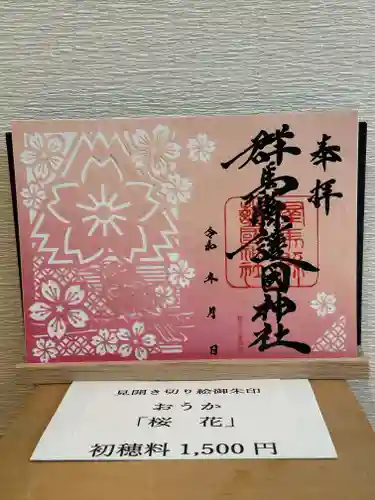 奉拝
群馬縣護国神社
令和　年　月　日
見開き切り絵御朱印
おうか
「桜　花」
初穂料 1,500 円